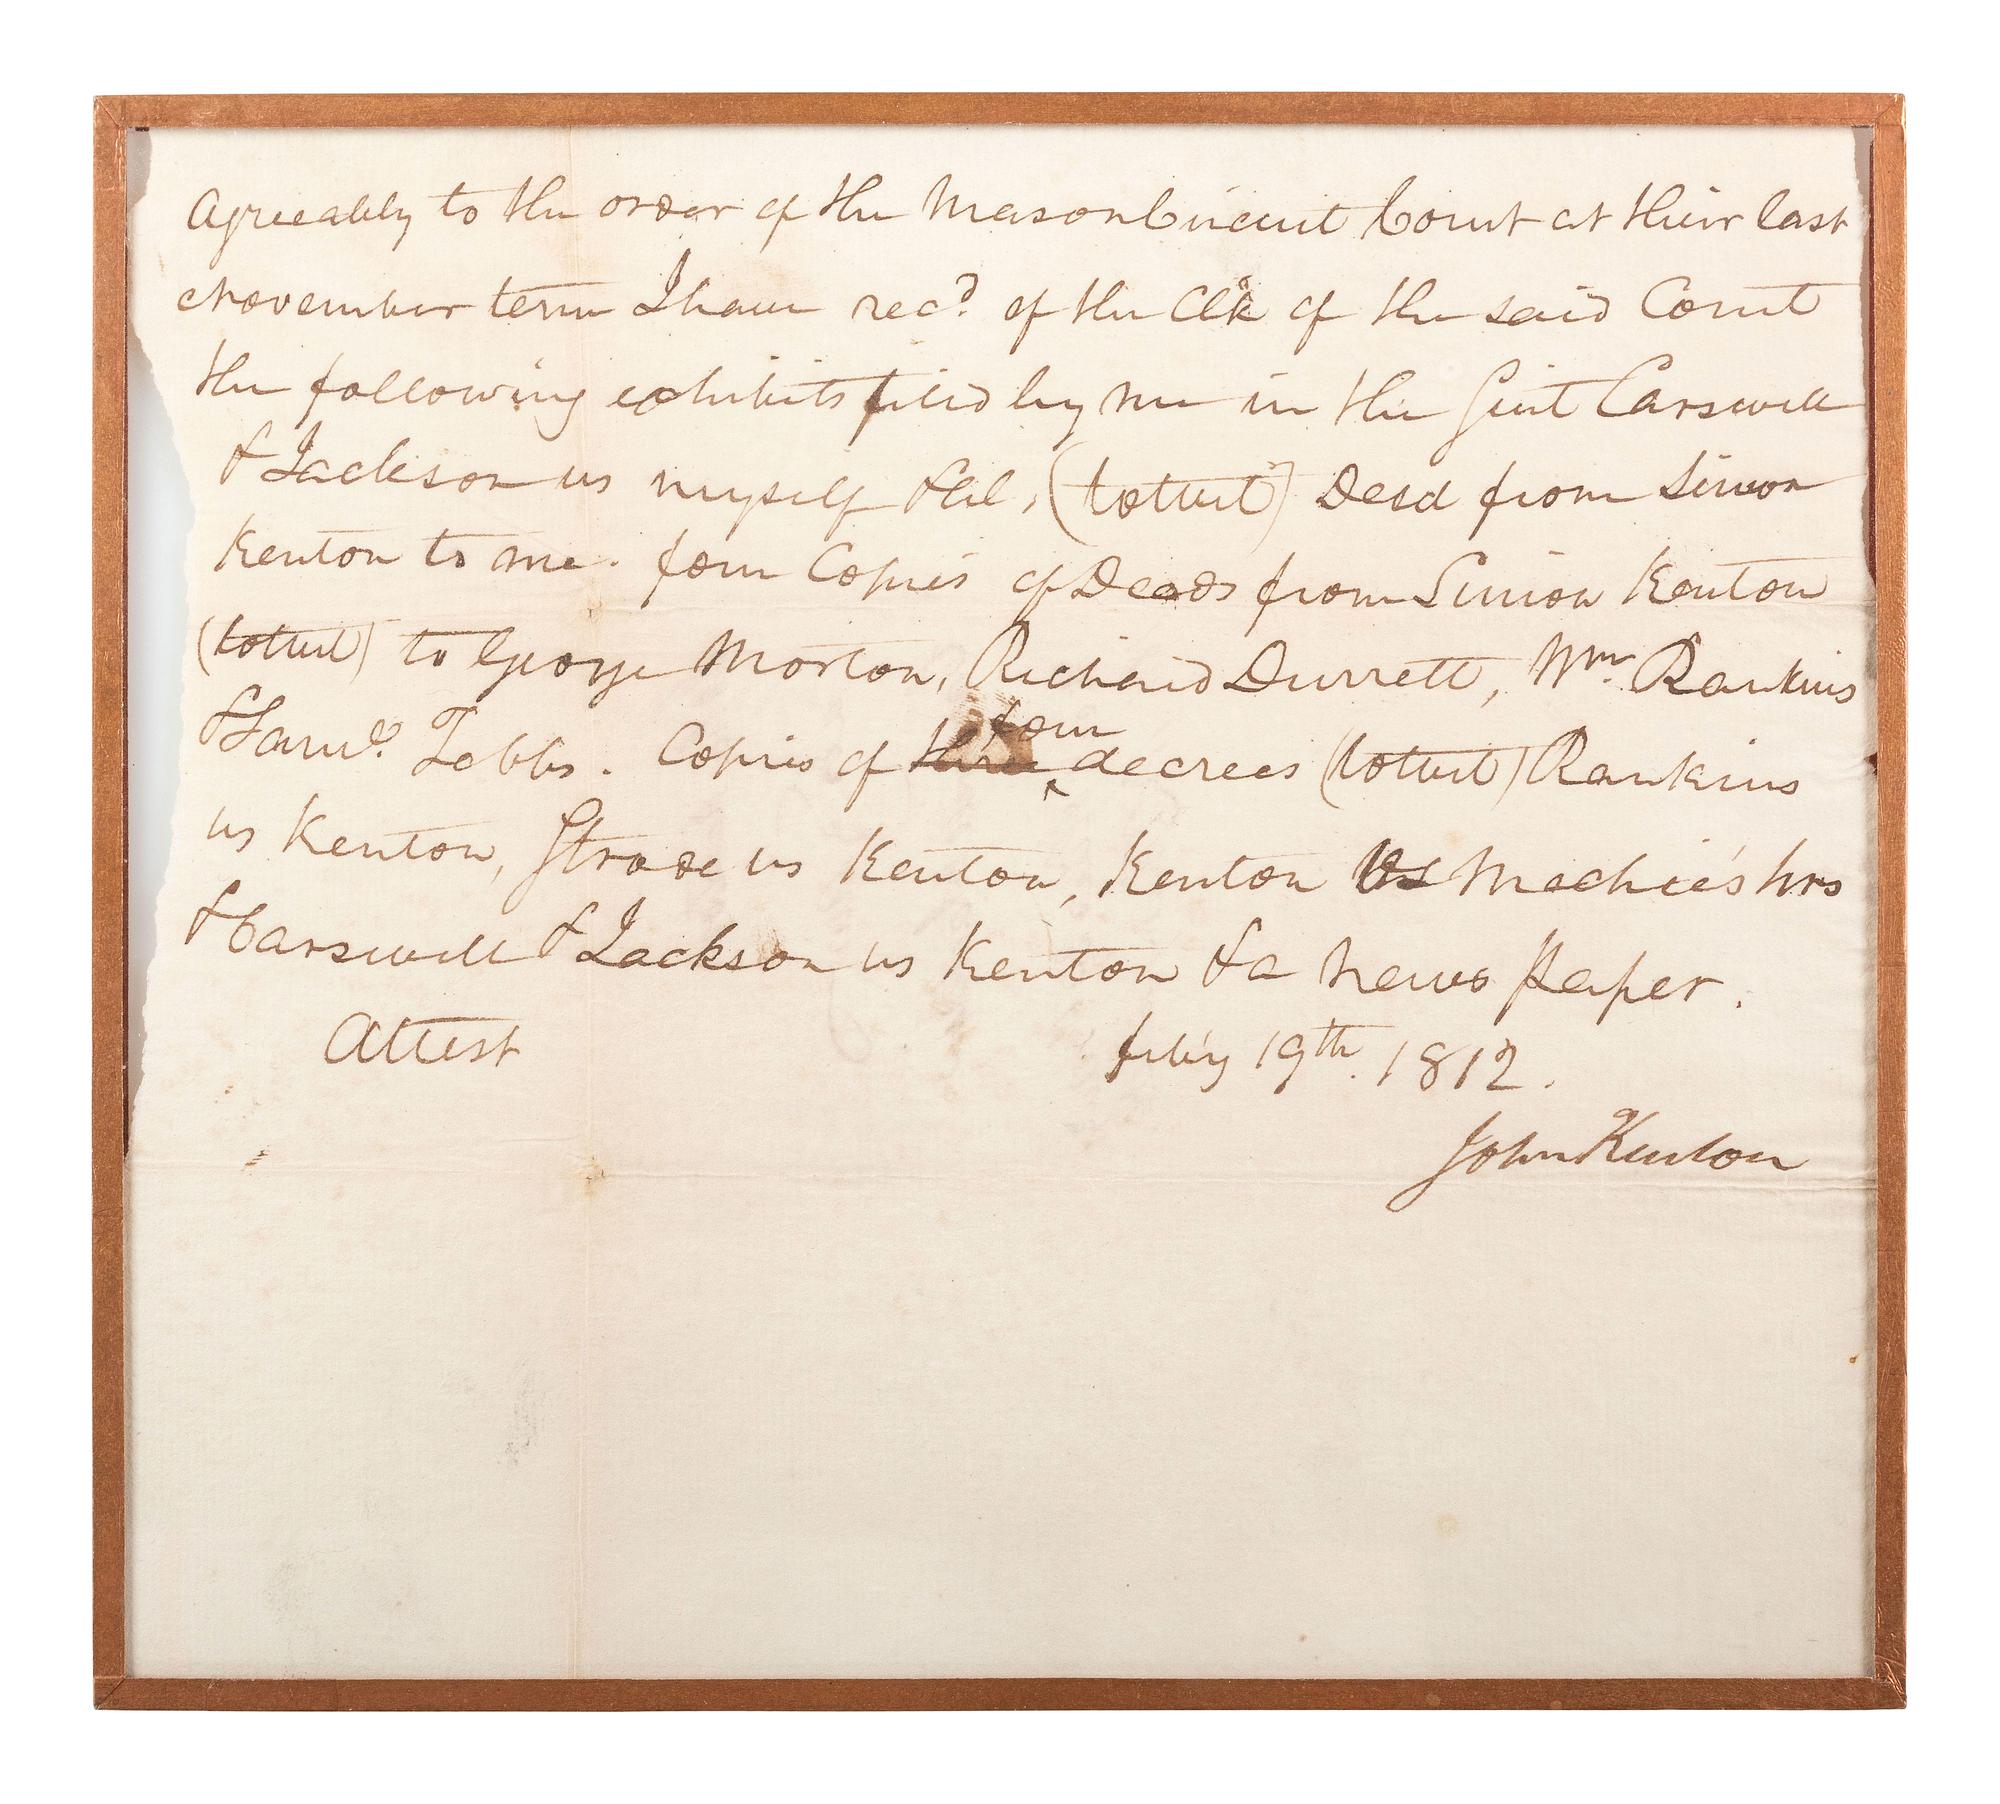 Agreeably to the order of the Mason Circuit Court at their last
November term I have recd. of the Clk of the said Court
the following exhibits filed by me in the Suit Carswell
& Jackson vs myself &al, (towit) Deed from Simon
Kenton to me. four Copies of Deeds from Simon Kenton
(towit) to George Morton, Richard Durrett, Wm. Rankins
& Saml. Tebbs. Copies of three four decrees (towit) Rankins
vs Kenton, Strode vs Kenton, Kenton vs Mechie's hrs
& Carswell & Jackson vs Kenton & a News paper.
Attest July 19th. 1812.
John Kenton